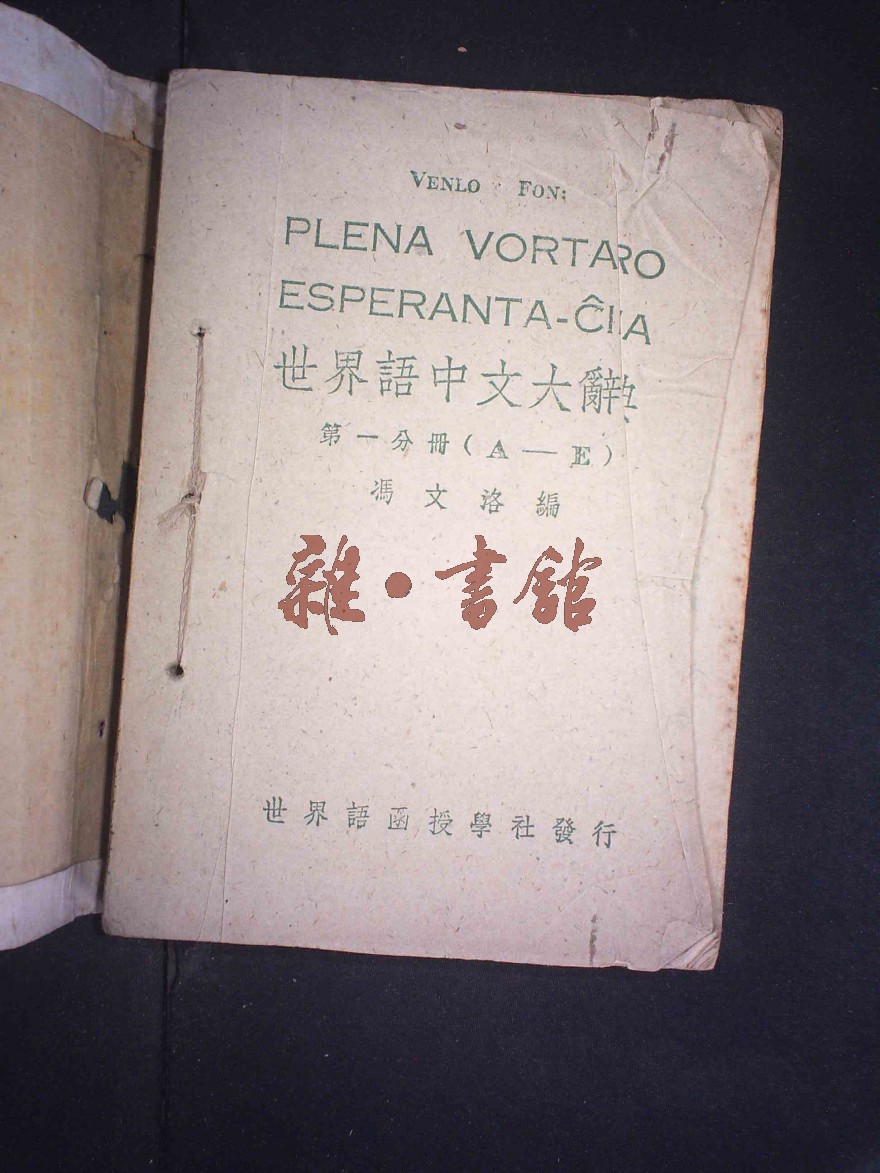 VENLO FON:
PLENA VORTARO
ESPERANTA-ĈINA
世界語中文大辭典
第一分冊(A—E)
馮文洛編
雜·書館
世界語函授學社發行